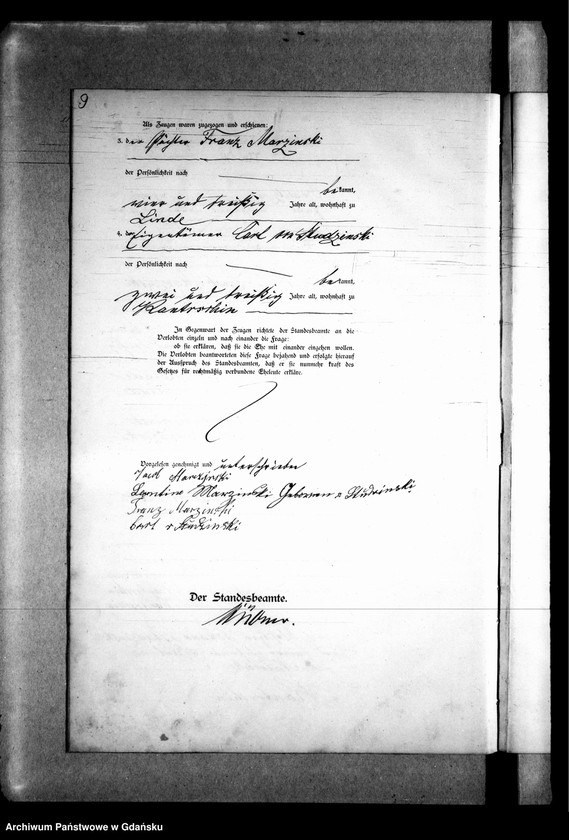 9
Als Zeugen waren zugezogen und erschienen:
3. der Pächter Franz Marzinski
der Persönlichkeit nach
bekannt,
vier und dreißig Jahre alt, wohnhaft zu
Linde
4. der Eigentümer Carl von Studzinski
der Persönlichkeit nach
bekannt,
zwei und dreißig Jahre alt, wohnhaft zu
In Gegenwart der Zeugen richtete der Standesbeamte an die
Verlobten einzeln und nach einander die Frage:
ob sie erklären, daß sie die Ehe mit einander eingehen wollen.
Die Verlobten beantworteten diese Frage bejahend und erfolgte hierauf
der Ausspruch des Standesbeamten, daß er sie nunmehr kraft des
Gesetzes für rechtmäßig verbundene Eheleute erkläre.
Vorgelesen genehmigt und unterschrieben
Marzinski
Leontine Marzinski Geborene v. Studzinski
Franz Marzinski
Carl v Studzinski
Der Standesbeamte.
Archiwum Państwowe w Gdańsku